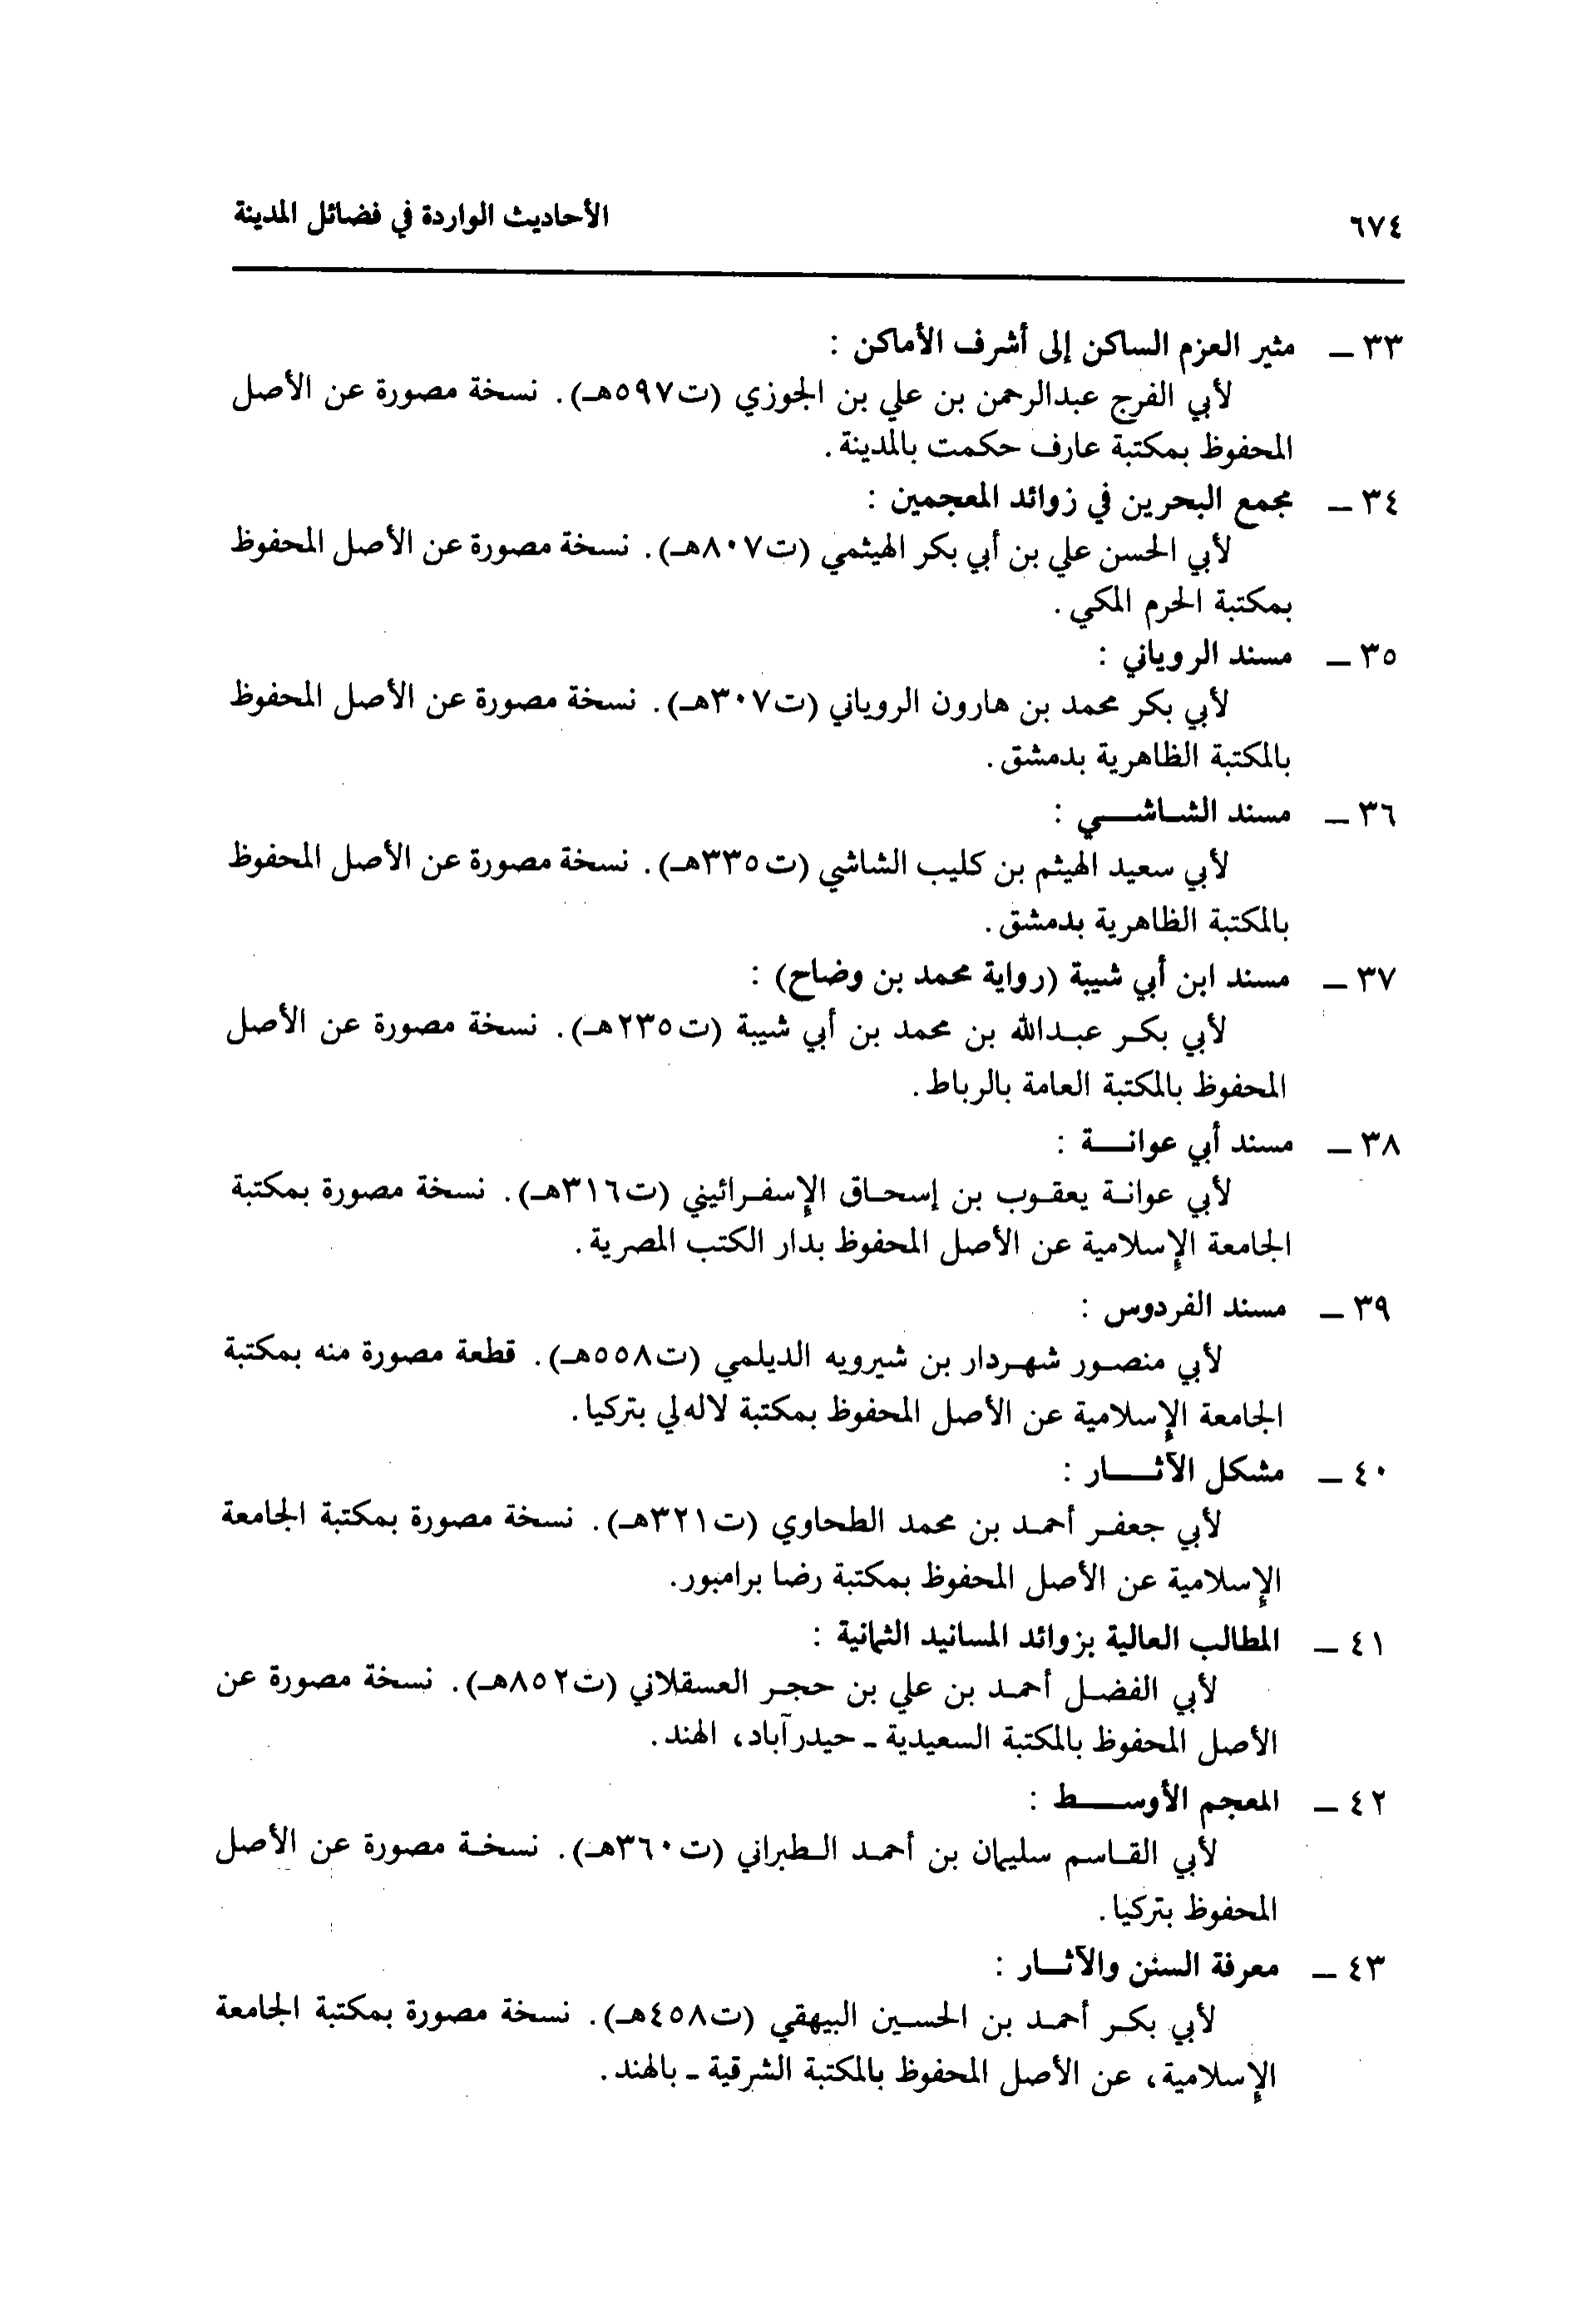 ٦٧٤ الأحاديث الواردة في فضائل المدينة
٣٣ ـ مثير العزم الساكن إلى أشرف الأماكن :
لأبي الفرج عبدالرحمن بن علي بن الجوزي (ت٥٩٧هـ). نسخة مصورة عن الأصل
المحفوظ بمكتبة عارف حكمت بالمدينة.
٣٤ ـ مجمع البحرين في زوائد المعجمين :
لأبي الحسن علي بن أبي بكر الهيثمي (ت٨٠٧هـ). نسخة مصورة عن الأصل المحفوظ
بمكتبة الحرم المكي.
٣٥ ـ مسند الروياني :
لأبي بكر محمد بن هارون الروياني (ت٣٠٧هـ). نسخة مصورة عن الأصل المحفوظ
بالمكتبة الظاهرية بدمشق.
٣٦ ـ مسند الشاشـــي :
لأبي سعيد الهيثم بن كليب الشاشي (ت٣٣٥هـ). نسخة مصورة عن الأصل المحفوظ
بالمكتبة الظاهرية بدمشق.
٣٧ ـ مسند ابن أبي شيبة (رواية محمد بن وضاح) :
لأبي بكر عبدالله بن محمد بن أبي شيبة (ت٢٣٥هـ). نسخة مصورة عن الأصل
المحفوظ بالمكتبة العامة بالرباط.
٣٨ ـ مسند أبي عوانــة :
لأبي عوانة يعقوب بن إسحاق الإسفرائيني (ت٣١٦هـ). نسخة مصورة بمكتبة
الجامعة الإسلامية عن الأصل المحفوظ بدار الكتب المصرية.
٣٩ ـ مسند الفردوس :
لأبي منصور شهردار بن شيرويه الديلمي (ت٥٥٨هـ). قطعة مصورة منه بمكتبة
الجامعة الإسلامية عن الأصل المحفوظ بمكتبة لاله‌لي بتركيا.
٤٠ ـ مشكل الآثـــار :
لأبي جعفر أحمد بن محمد الطحاوي (ت٣٢١هـ). نسخة مصورة بمكتبة الجامعة
الإسلامية عن الأصل المحفوظ بمكتبة رضا برامبور.
٤١ ـ المطالب العالية بزوائد المسانيد الثمانية :
لأبي الفضل أحمد بن علي بن حجر العسقلاني (ت٨٥٢هـ). نسخة مصورة عن
الأصل المحفوظ بالمكتبة السعيدية ـ حيدرآباد، الهند.
٤٢ ـ المعجم الأوســـط :
لأبي القاسم سليمان بن أحمد الطبراني (ت٣٦٠هـ). نسخة مصورة عن الأصل
المحفوظ بتركيا.
٤٣ ـ معرفة السنن والآثــار :
لأبي بكر أحمد بن الحسين البيهقي (ت٤٥٨هـ). نسخة مصورة بمكتبة الجامعة
الإسلامية، عن الأصل المحفوظ بالمكتبة الشرقية ـ بالهند.